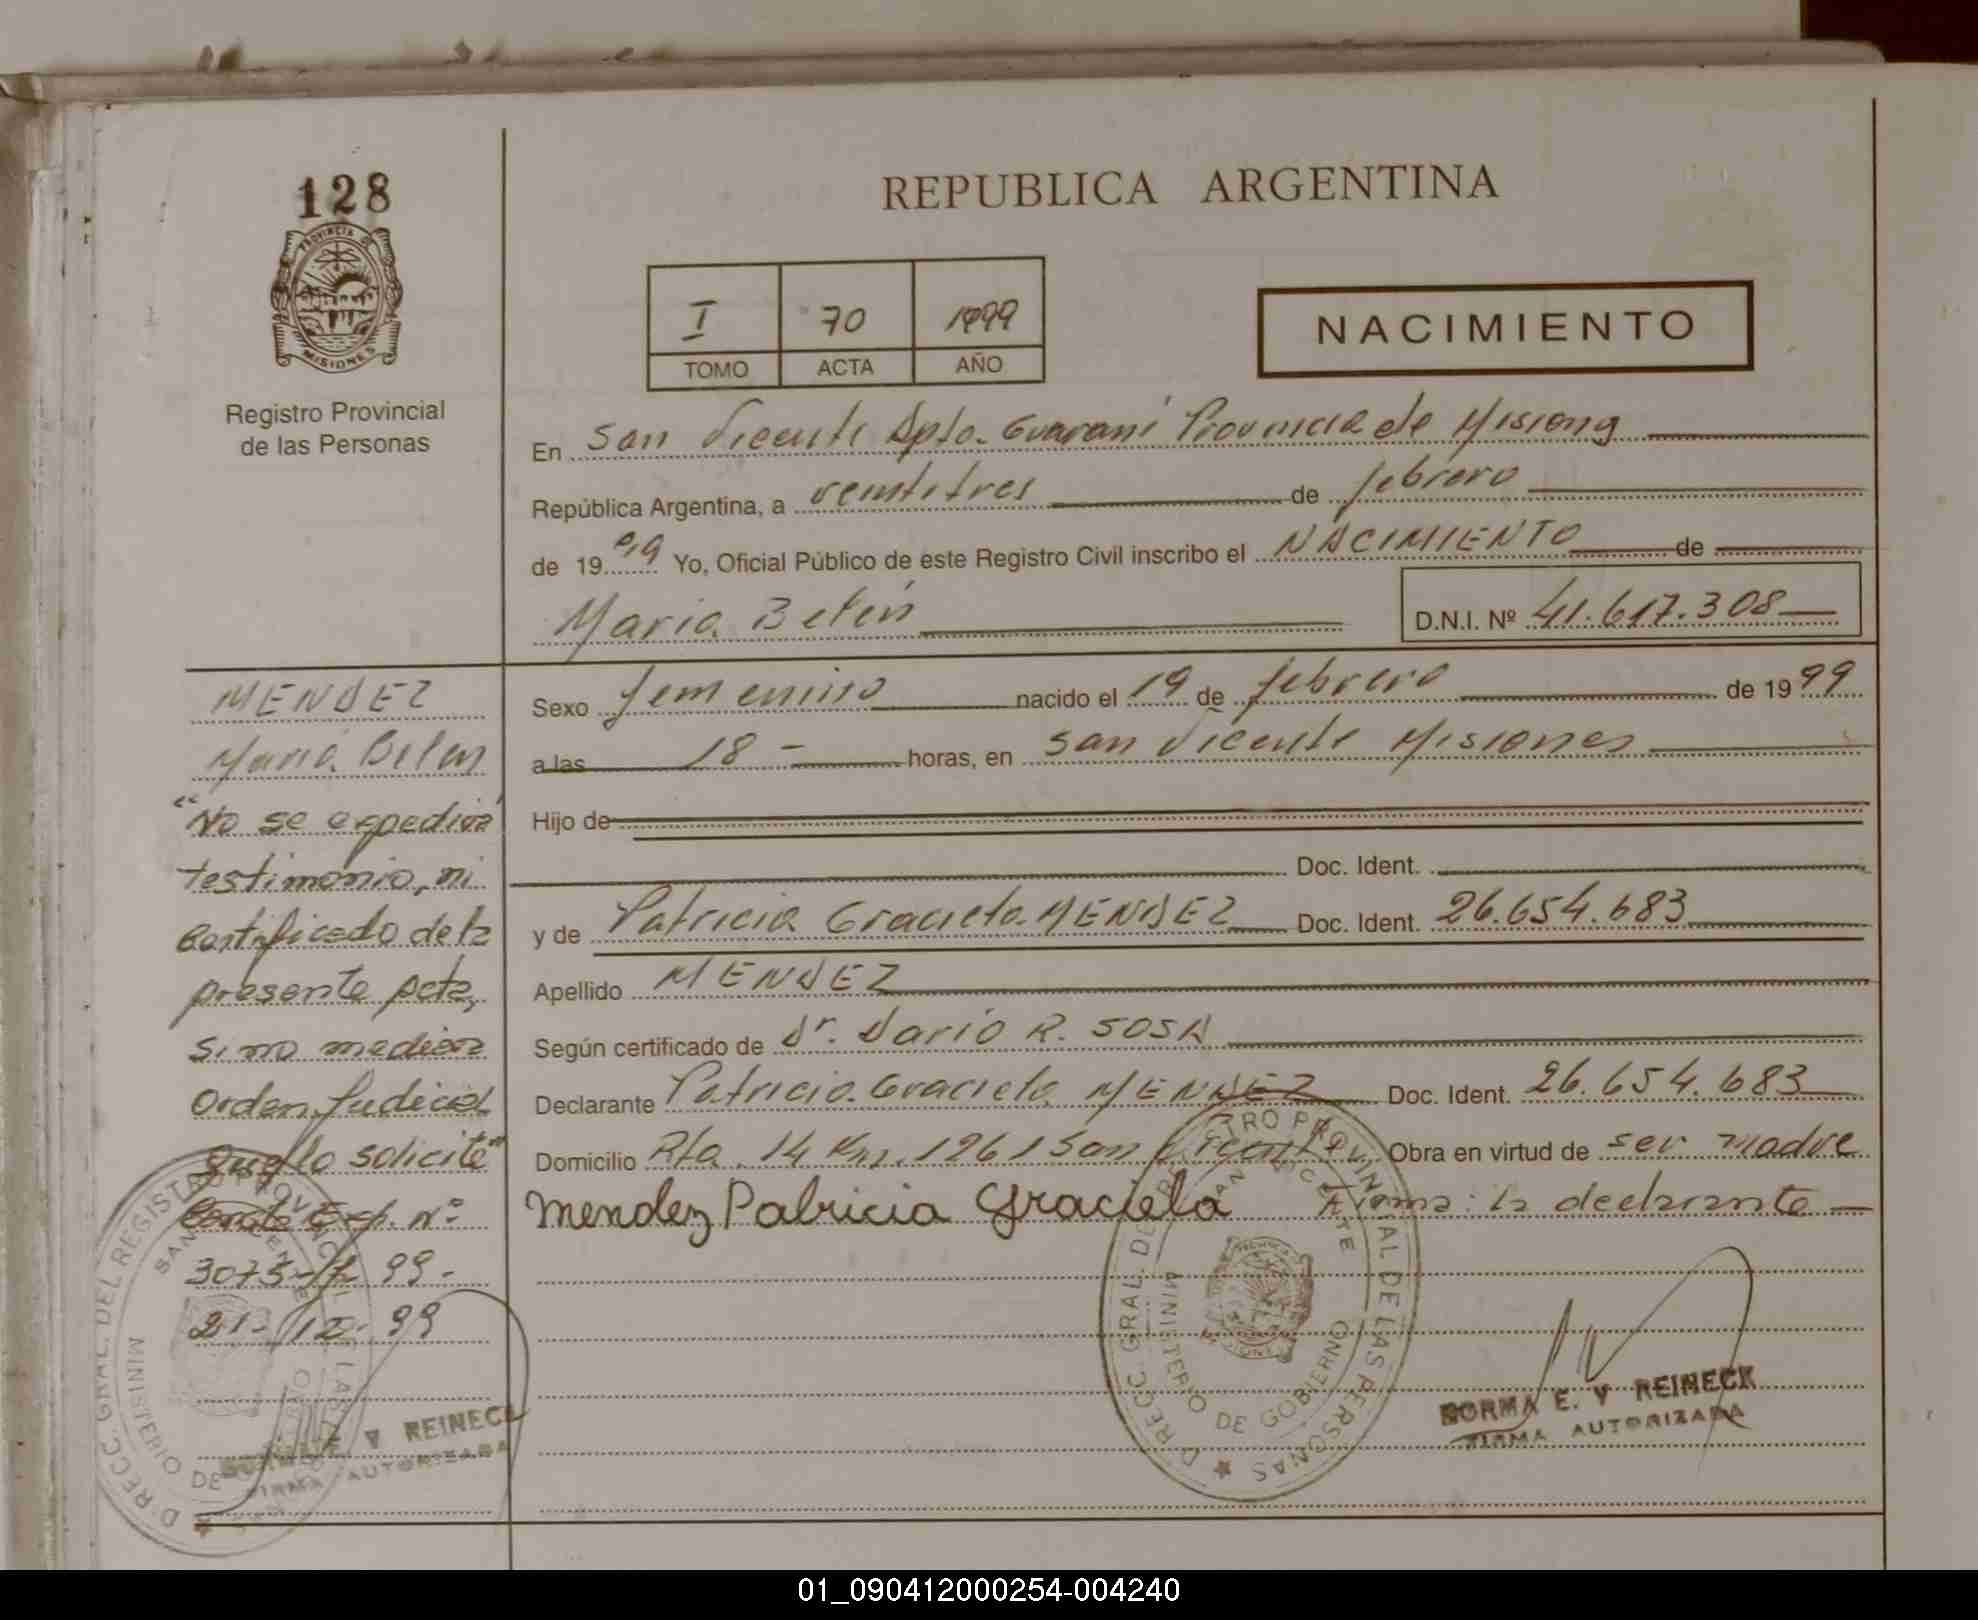 128
PROVINCIA DE
MISIONES
Registro Provincial
de las Personas
REPUBLICA ARGENTINA
I 70 1999
TOMO ACTA AÑO
NACIMIENTO
En San Vicente Dpto. Guaraní Provincia de Misiones
República Argentina, a veintitres de febrero
de 1999 Yo, Oficial Público de este Registro Civil inscribo el NACIMIENTO de
María Belén
D.N.I. Nº 41.617.308
MENDEZ
María Belen
"No se expedirá
testimonio, ni
certificado de la
presente acta,
si no media
Orden Judicial
que lo solicite"
Exp. nº
3075- 99-
21-12-99
Sexo femenino nacido el 19 de febrero de 1999
a las 18- horas, en San Vicente Misiones
Hijo de
Doc. Ident.
y de Patricia Graciela MENDEZ Doc. Ident. 26.654.683
Apellido MENDEZ
Según certificado de Dr. Dario R. SOSA
Declarante Patricia Graciela MENDEZ Doc. Ident. 26.654.683
Domicilio Rta. 14 Km. 1261 San Vicente Obra en virtud de ser madre
Mendez Patricia Graciela Firma: la declarante
DIRECC. GRAL. DEL REGISTRO PROVINCIAL DE LAS PERSONAS
SAN VICENTE
MINISTERIO DE GOBIERNO
NORMA E. V REINECK
FIRMA AUTORIZADA
DIRECC. GRAL. DEL REGISTRO PROVINCIAL DE LAS
SAN VICENTE
MINISTERIO DE
V REINECK
FIRMA AUTORIZADA
01_090412000254-004240